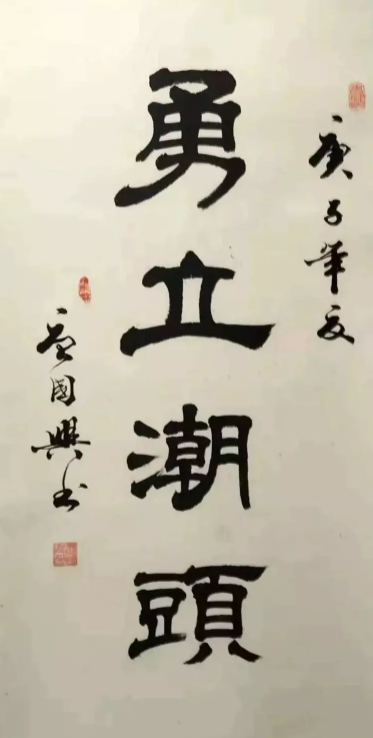 庚子年夏
勇立潮頭
國興书